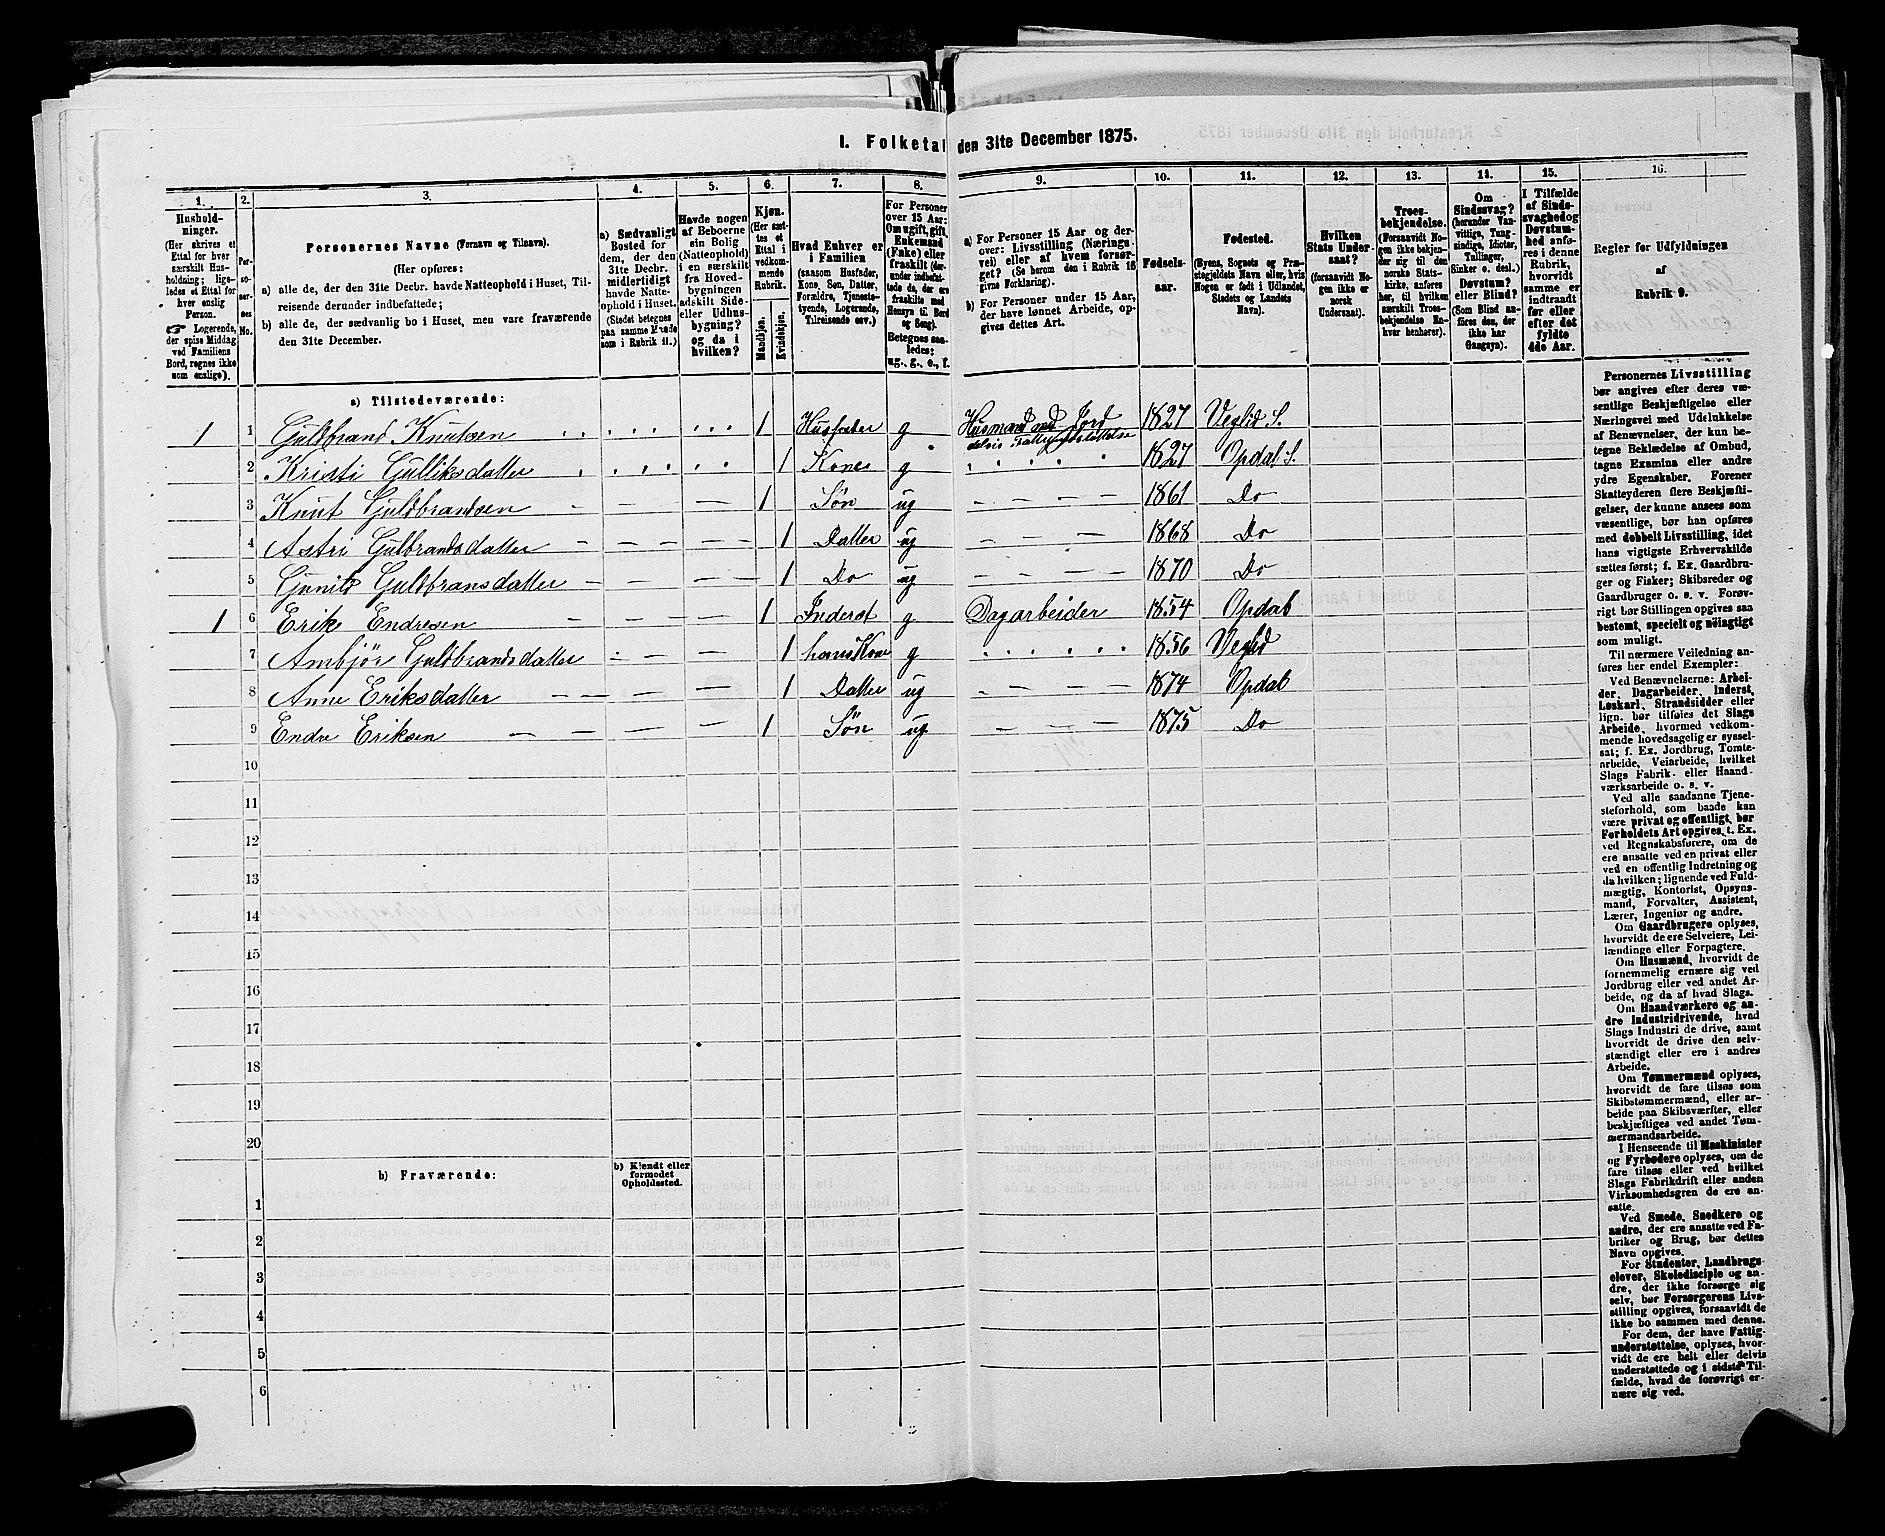 I. Folketal den 31te December 1875.
1. 2. 3. 4. 5. 6. 7. 8. 9. 10. 11. 12. 13. 14. 15. 16.
Husholdninger.
(Her skrives et
Ettal for hver
særskilt Husholdning;
ligeledes et Ettal for
hver enslig
Person.
☞ Logerende,
der spise Middag
ved Familiens
Bord, regnes ikke
som enslige).
Personernes No.
Personernes Navne (Fornavn og Tilnavn).
(Her opføres:
a) alle de, der den 31te Decbr. havde Natteophold i Huset, Tilreisende derunder indbefattede;
b) alle de, der sædvanlig bo i Huset, men vare fraværende
den 31te December.
a) Sædvanligt
Bosted for
dem, der den
31te Decbr.
midlertidigt
havde Natteophold
i Huset.
(Stedet betegnes
paa samme Maade
som i Rubrik 11.)
Havde nogen
af Beboerne
sin Bolig
(Natteophold)
i en særskilt
fra Hovedbygningen
adskilt Side-
eller Udhusbygning?
og da i
hvilken?
Kjøn.
(Her sættes et
Ettal i
vedkommende
Rubrik.
Mandkjøn.
Kvindekjøn.
Hvad Enhver er
i Familien
(saasom Husfader,
Kone, Søn, Datter,
Forældre, Tjenestetyende, Logerende,
Tilreisende osv.)
For Personer
over 15 Aar:
Om ugift, gift,
Enkemand
(Enke) eller
fraskilt (derunder indbefattede, de, der ere
fraskilte med
Hensyn til Bord
og Seng).
Betegnes saaledes:
ug., g., e., f.
a) For Personer 15 Aar og derover: Livsstilling (Næringsvei) eller af hvem forsørget? (Se herom den i Rubrik 16
givne Forklaring).
b) For Personer under 15 Aar,
der have lønnet Arbeide, opgives dettes Art.
Fødselsaar.
Fødested.
(Byens, Sognets og Præstegjeldets Navn eller, hvis
Nogen er født i Udlandet,
Stedets og Landets
Navn).
Hvilken
Stats Undersaat?
(forsaavidt Nogen ikke er
norsk
Undersaat).
Troesbekjendelse.
(Forsaavidt Nogen ikke bekjender sig til den
norske Statskirke, anføres
her, til hvilken
særskilt Troesbekjendelse Enhver henhører).
Om
Sindssvag?
(herunder Vanvittige, Tungsindige, Idioter,
Tullinger,
Sinker o. desl.)
Døvstum?
eller Blind?
(Som Blind anføres den, der
ikke har
Gangsyn).
I Tilfælde
af Sindssvaghed og
Døvstumhed anføres i denne
Rubrik,
hvorvidt
samme er
indtraadt
før eller
efter det
fyldte
4de Aar.
Regler for Udfyldningen
af
Rubrik 9.
a) Tilstedeværende:
1 1 Guldbrand Knutsen 1 Husfader g Husmand med Jord delvis Fattigunderstøttelse 1827 Veglid S.
2 Kristi Gulliksdatter 1 Kone g 1827 Opdal S.
3 Knut Guldbrandsen 1 Søn ug 1861 Do
4 Astri Gulbrandsdatter 1 Datter ug 1868 Do
5 Gunild Guldbransdatter 1 Do ug 1870 Do
1 6 Erik Endresen 1 Inderst g Dagarbeider 1854 Opdal
7 Ambjør Guldbrandsdatter 1 hans Kone g 1856 Veglid
8 Anne Eriksdatter 1 Datter ug 1874 Opdal
9 Endre Eriksen 1 Søn ug 1875 Do
10
11
12
13
14
15
16
17
18
19
20
b) Fraværende:
b) Kjendt eller
formodet
Opholdssted.
1
2
3
4
5
6
Personernes Livsstilling
bør angives efter deres væsentlige Beskjæftigelse eller
Næringsvei med Udelukkelse
af Benævnelser, der kun betegne Beklædelse af Ombud,
tagne Examina eller andre
ydre Egenskaber. Forener
Skatteyderen flere Beskjæftigelser, der kunne ansees som
væsentlige, bør han opføres
med dobbelt Livsstilling, idet
hans vigtigste Erhvervskilde
sættes først; f. Ex. Gaardbruger og Fisker; Skibsreder og
Gaardbruger o. s. v. Forøvrigt bør Stillingen opgives saa
bestemt, specielt og nøiagtigt
som muligt.
Til nærmere Veiledning anføres her endel Exempler:
Ved Benævnelserne: Arbeider, Dagarbeider, Inderst,
Løskarl, Strandsidder eller
lign. bør tilføies det Slags
Arbeide, hvormed vedkommende hovedsagelig er sysselsat; f. Ex. Jordbrug, Tomtearbeide, Veiarbeide, hvilket
Slags Fabrik- eller Haandværksarbeide o. s. v.
Ved alle saadanne Tjenesteforhold, som baade kan
være privat og offentligt, bør
Forholdets Art opgives, t. Ex.
ved Regnskabsførere, om de
ere ansatte ved en privat eller
ved en offentlig Indretning og
da hvilken; lignende ved Fuldmægtig, Kontorist, Opsynsmand, Forvalter, Assistent,
Lærer, Ingeniør og andre.
Om Gaardbrugere oplyses,
hvorvidt de ere Selveiere, Leilændinge eller Forpagtere.
Om Husmænd, hvorvidt de
fornemmelig ernære sig ved
Jordbrug eller ved andet Arbeide, og da af hvad Slags.
Om Haandværkere og andre Industridrivende, hvad
Slags Industri de drive, samt
hvorvidt de drive den selvstændigt eller ere i andres
Arbeide.
Om Tømmermænd oplyses,
hvorvidt de fare tilsøs som
Skibstømmermænd, eller arbeide paa Skibsværfter, eller
beskjæftiges ved andet Tømmermandsarbeide.
I Henseende til Maskinister
og Fyrbødere oplyses, om de
fare tilsøs eller ved hvilket
Slags Fabrikdrift eller anden
Virksomhedsgren de ere ansatte.
Ved Smede, Snedkere og
andre, der ere ansatte ved Fabriker og Brug, bør dettes
Navn opgives.
For Studenter, Landbrugselever, Skoledisciple og andre, der ikke forsørge sig
selv, bør Forsørgerens Livsstilling opgives, forsaavidt de
ikke bo sammen med denne.
For dem, der have Fattigunderstøttelse, oplyses, hvorvidt de ere helt eller delvis
understøttede og i sidste Tilfælde, hvad de forøvrigt ernære sig ved.